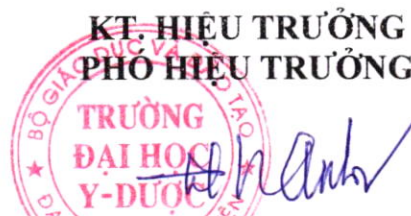 KT. HIỆU TRƯỞNG
PHÓ HIỆU TRƯỞNG
BỘ GIÁO DỤC VÀ ĐÀO TẠO
TRƯỜNG
ĐẠI HỌC
Y-DƯỢC